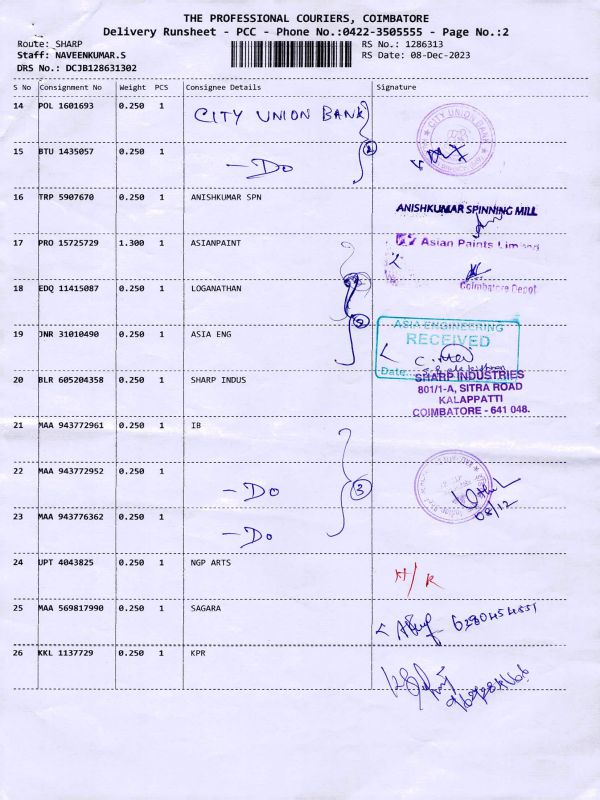 THE PROFESSIONAL COURIERS, COIMBATORE
Delivery Runsheet - PCC - Phone No.:0422-3505555 - Page No.:2
Route: SHARP RS No.: 1286313
Staff: NAVEENKUMAR.S RS Date: 08-Dec-2023
DRS No.: DCJB128631302
S No Consignment No Weight PCS Consignee Details Signature
14 POL 1601693 0.250 1 CITY UNION BANK CITY UNION BANK
15 BTU 1435057 0.250 1 - Do 2
16 TRP 5907670 0.250 1 ANISHKUMAR SPN ANISHKUMAR SPINNING MILL
17 PRO 15725729 1.300 1 ASIANPAINT Asian Paints Limited
18 EDQ 11415087 0.250 1 LOGANATHAN Coimbatore Depot
19 JNR 31010490 0.250 1 ASIA ENG ASIA ENGINEERING
RECEIVED
Date
20 BLR 605204358 0.250 1 SHARP INDUS SHARP INDUSTRIES
801/1-A, SITRA ROAD
KALAPPATTI
COIMBATORE - 641 048.
21 MAA 943772961 0.250 1 IB
22 MAA 943772952 0.250 1 - Do 3
08/12
23 MAA 943776362 0.250 1 - Do
24 UPT 4043825 0.250 1 NGP ARTS
25 MAA 569817990 0.250 1 SAGARA
26 KKL 1137729 0.250 1 KPR